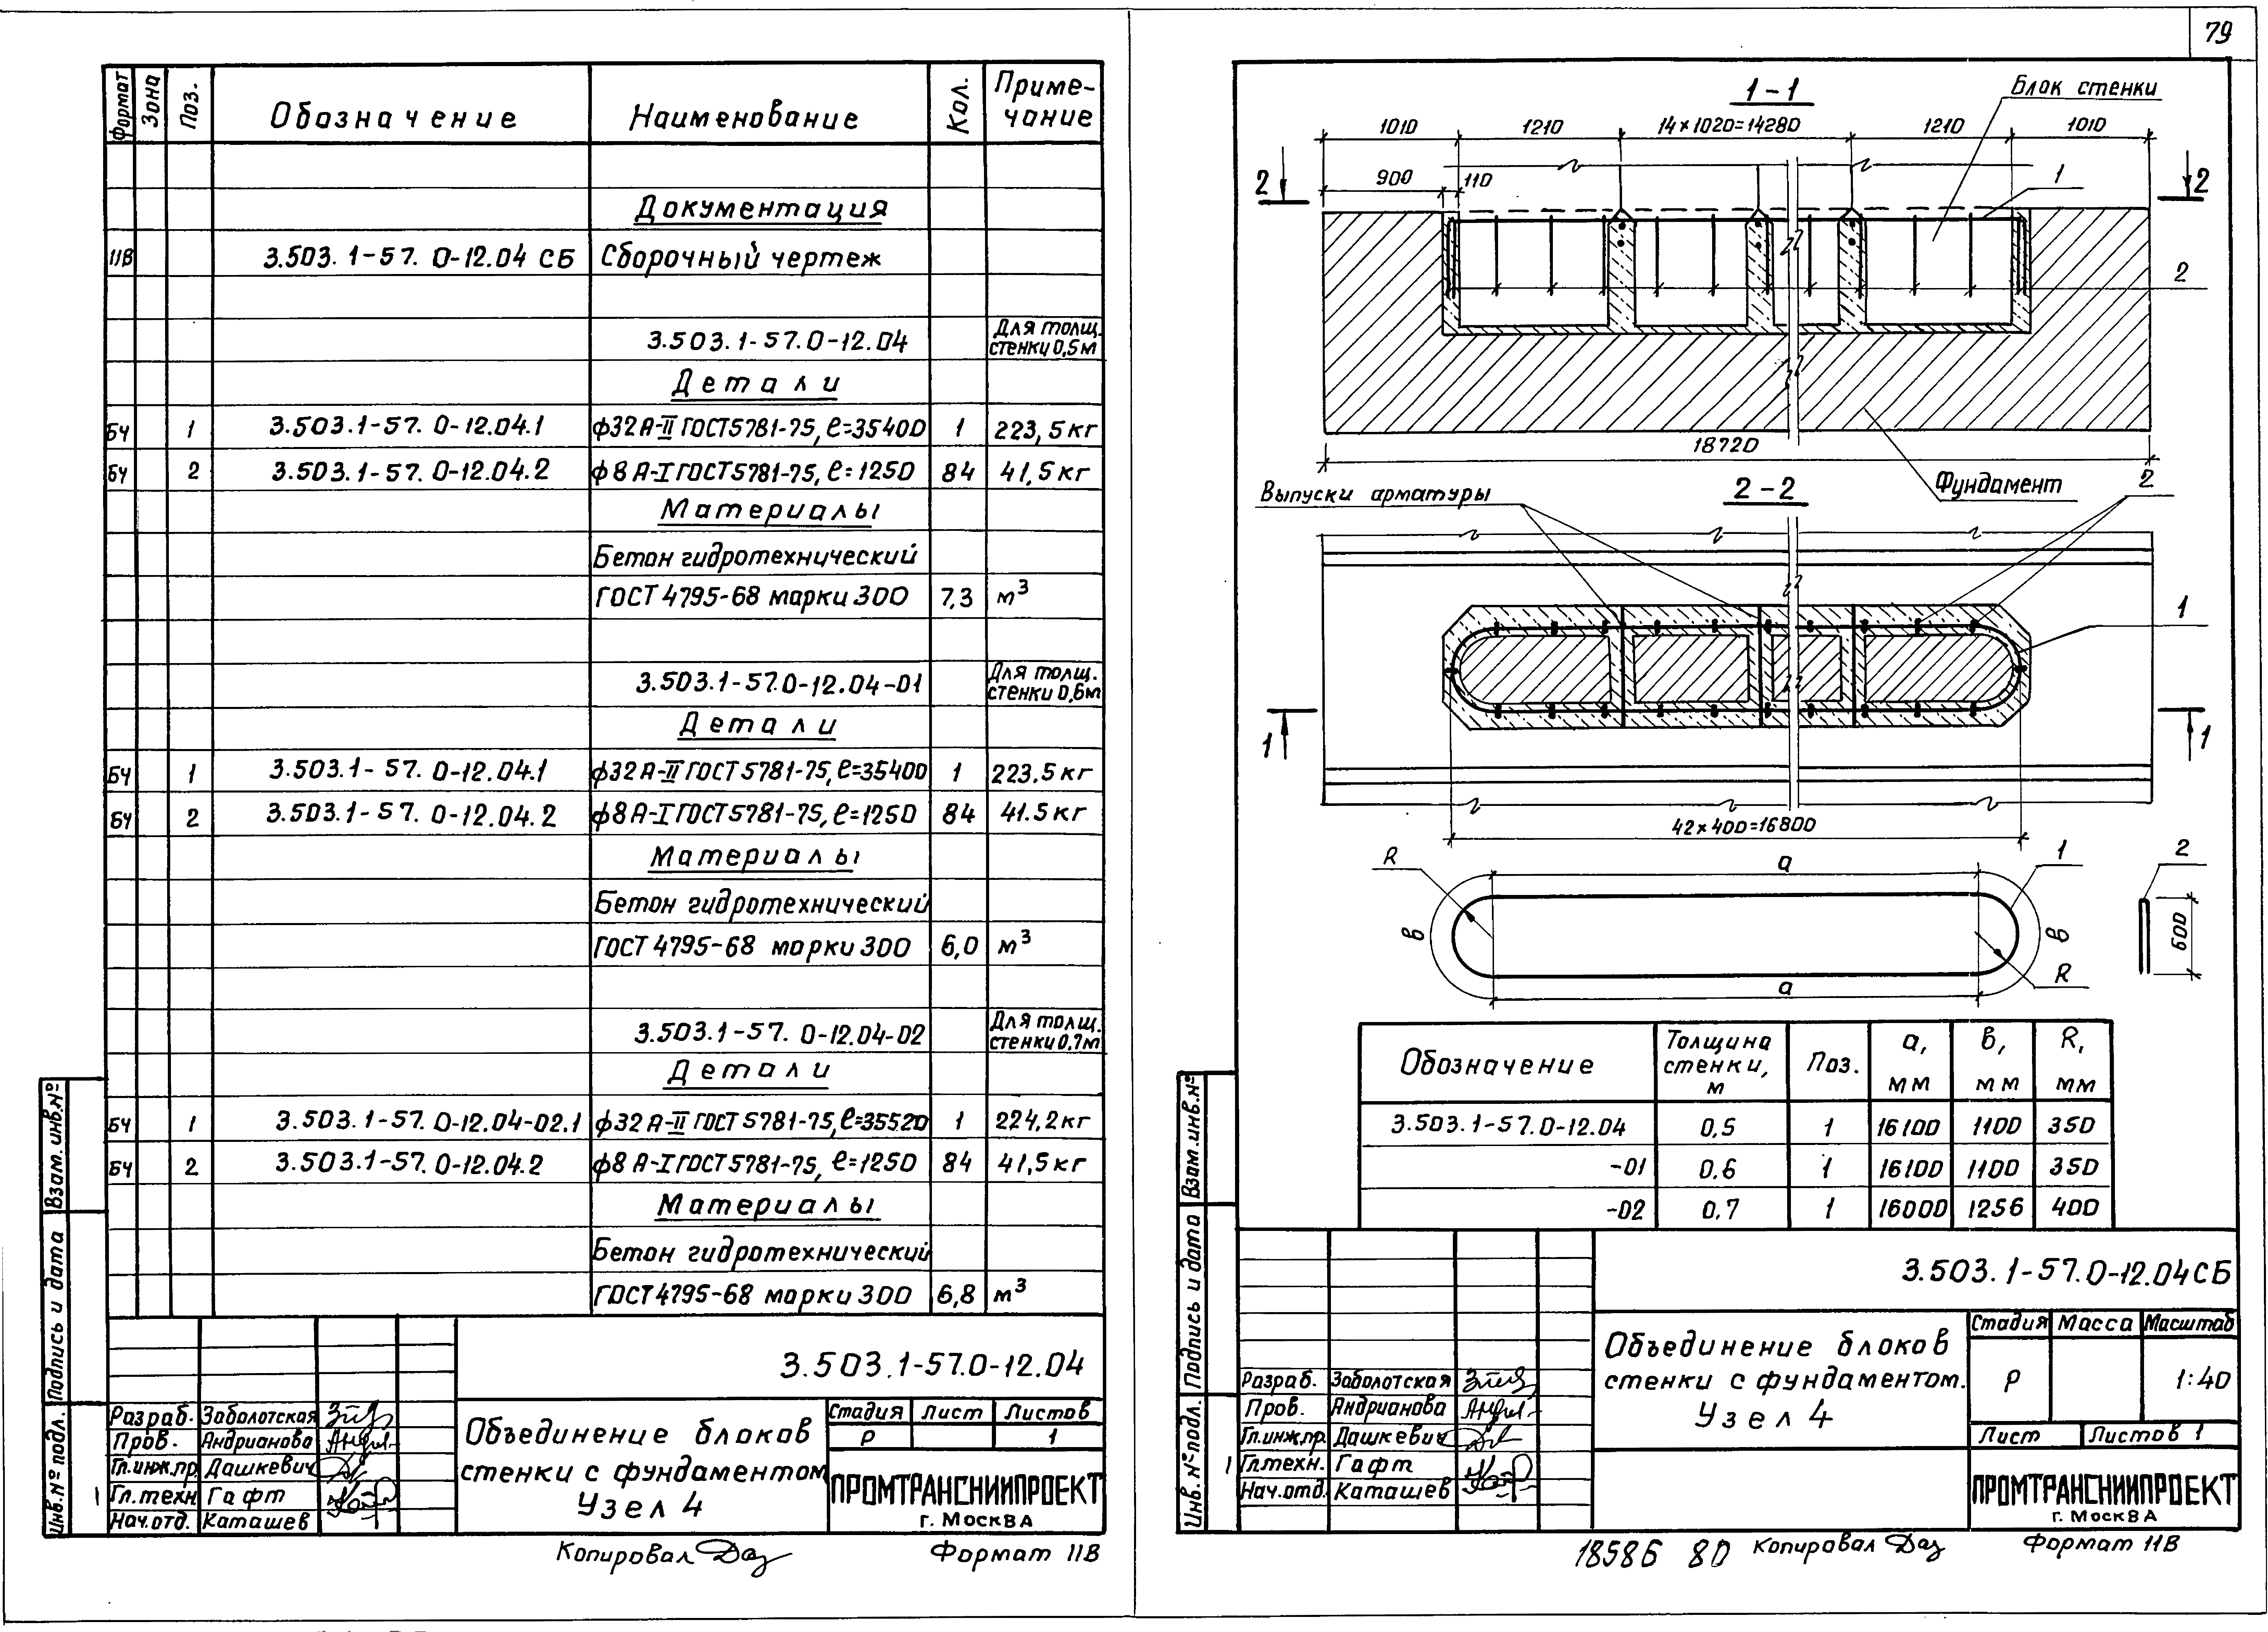 79
Формат Зона Поз. Обозначение Наименование Кол. Приме-
чание
Документация
11В 3.503.1-57.0-12.04 СБ Сборочный чертеж
3.503.1-57.0-12.04 Для толщ.
стенки 0,5м
Детали
БЧ 1 3.503.1-57.0-12.04.1 ф32А-II ГОСТ5781-75, ℓ=35400 1 223,5кг
БЧ 2 3.503.1-57.0-12.04.2 ф8А-I ГОСТ5781-75, ℓ=1250 84 41,5кг
Материалы
Бетон гидротехнический
ГОСТ 4795-68 марки 300 7,3 м³
3.503.1-57.0-12.04-01 Для толщ.
стенки 0,6м
Детали
БЧ 1 3.503.1-57.0-12.04.1 ф32А-II ГОСТ5781-75, ℓ=35400 1 223.5кг
БЧ 2 3.503.1-57.0-12.04.2 ф8А-I ГОСТ5781-75, ℓ=1250 84 41.5кг
Материалы
Бетон гидротехнический
ГОСТ 4795-68 марки 300 6,0 м³
3.503.1-57.0-12.04-02 Для толщ.
стенки 0,7м
Детали
БЧ 1 3.503.1-57.0-12.04-02.1 ф32А-II ГОСТ5781-75, ℓ=35520 1 224,2кг
БЧ 2 3.503.1-57.0-12.04.2 ф8А-I ГОСТ5781-75, ℓ=1250 84 41,5кг
Материалы
Бетон гидротехнический
ГОСТ4795-68 марки 300 6,8 м³
Взам.инв.№
Подпись и дата
Инв.№подл.
1
3.503.1-57.0-12.04
Разраб. Заболотская
Пров. Андрианова
Гл.инж.пр. Дашкевич
Гл.техн. Гафт
Нач.отд. Каташев
Объединение блоков
стенки с фундаментом
Узел 4
Стадия Лист Листов
Р 1
ПРОМТРАНСНИИПРОЕКТ
г. Москва
Копировал
Формат 11В
1-1
Блок стенки
1010 1210 14×1020=14280 1210 1010
2 900 110 1 2
2
18720
Фундамент
Выпуски арматуры
2-2
2
1
1 1
42×400=16800
R а 1 2
в в 600
R
а
Обозначение Толщина
стенки,
м Поз. а,
мм в,
мм R,
мм
3.503.1-57.0-12.04 0,5 1 16100 1100 350
-01 0.6 1 16100 1100 350
-02 0.7 1 16000 1256 400
Взам.инв.№
Подпись и дата
Инв.№подл.
1
3.503.1-57.0-12.04СБ
Разраб. Заболотская
Пров. Андрианова
Гл.инж.пр. Дашкевич
Гл.техн. Гафт
Нач.отд. Каташев
Объединение блоков
стенки с фундаментом.
Узел 4
Стадия Масса Масштаб
Р 1:40
Лист Листов 1
ПРОМТРАНСНИИПРОЕКТ
г. Москва
18586 80 Копировал
Формат 11В